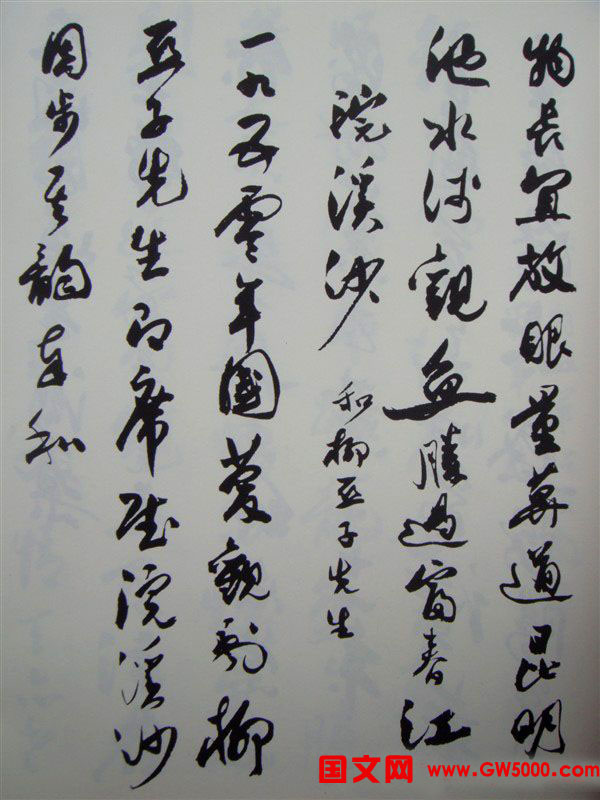 物長宜放眼量莫道昆明
池水淺觀魚勝過富春江
浣溪沙 和柳亞子先生
一九五零年國慶觀劇柳
亞子先生即席賦浣溪沙
因步其韻奉和
国文网 www.GW5000.com